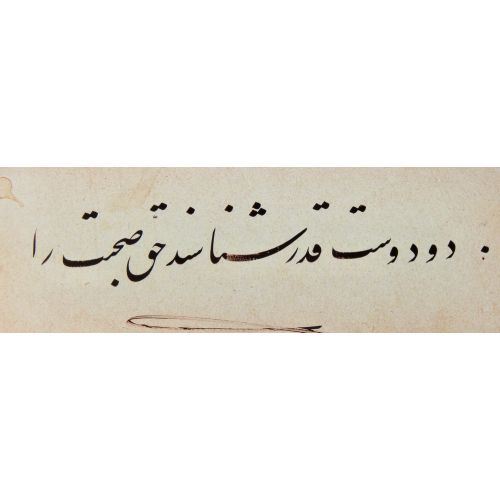 دو دوست قدر شناسند حقّ صحبت را